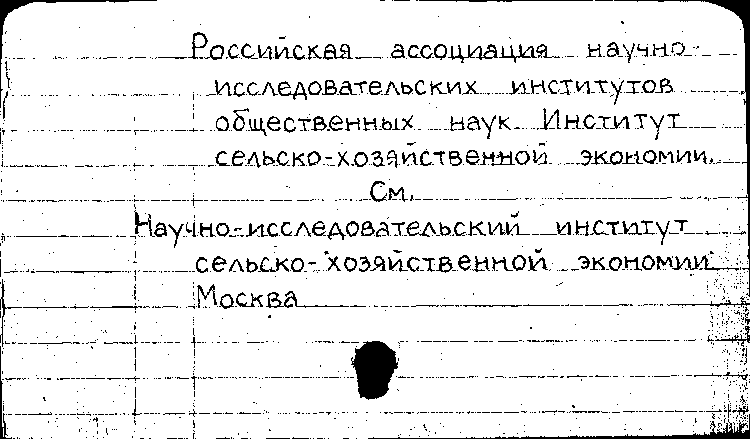 Российская ассоциация научно-
исследовательских институтов
общественных наук. Институт
сельско-хозяйственной экономии.
См.
Научно-исследовательский институт
сельско-хозяйственной экономии.
Москва